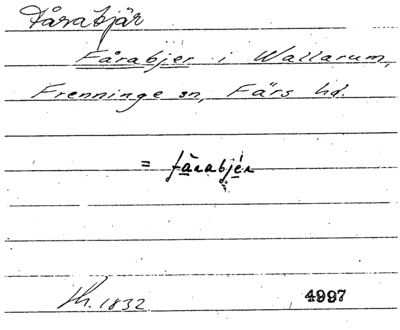 Fårabjär
Fårabjer i Wallarum,
Frenninge sn, Färs hd.
= fårabjér
Th. 1832
4997